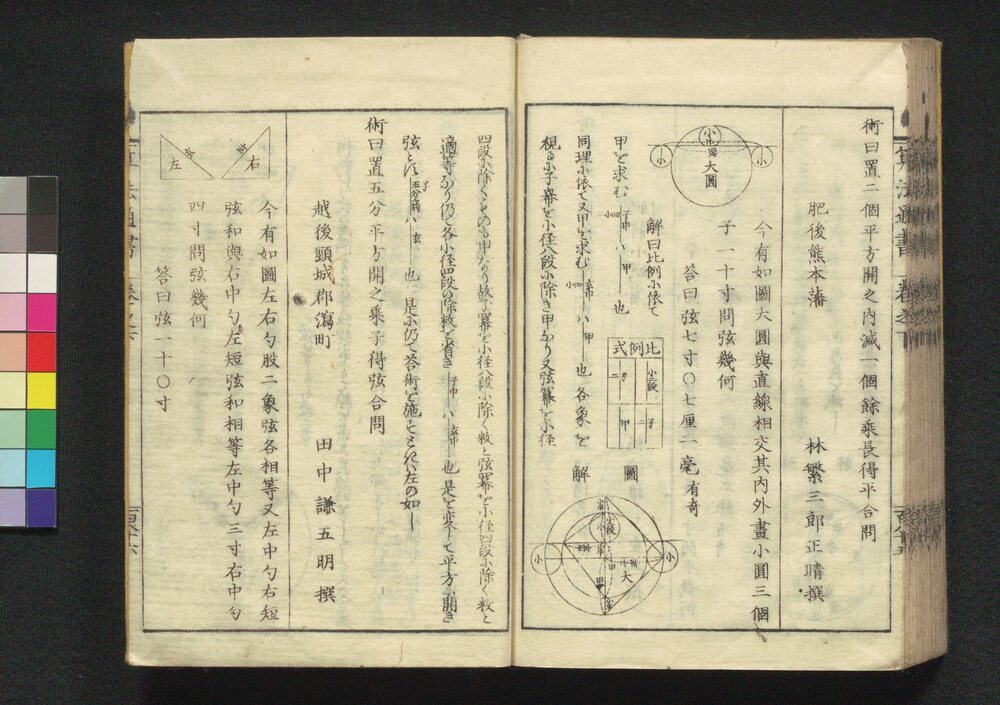 術曰置二個平方開之内減一個餘乘長得平合問
肥後熊本藩
林繁三郎正晴撰
今有如圖大圓與直線相交其内外畫小圓三個
子一十寸問弦幾何
答曰弦七寸〇七厘一毫有奇
小
大圓
小
小
解曰比例小依て
甲を求む 八 甲 也
比例式
同理小依て又甲を求む 八 甲 也 各象を
視る小子冪を小径八段小除き甲なり又弦冪を小径
圖解
小
小
大
甲
四段小除くものも甲なり故子冪を小径八段小除く数と弦冪を小径四段小除く数と
適等なり仍て各小径四段の除数を省き 八 也 是を変して平方小開き
弦とす 五分商 八 玄 也 是小仍て答術を施すこと左の如し
術曰置五分平方開之乘子得弦合問
越後頸城郡瀉町
田中謙五明撰
右
左
今有如圖左右勾股二象弦各相等又左中勾右短
弦和與右中勾左短弦和相等左中勾三寸右中勾
四寸問弦幾何
答曰弦一十〇寸